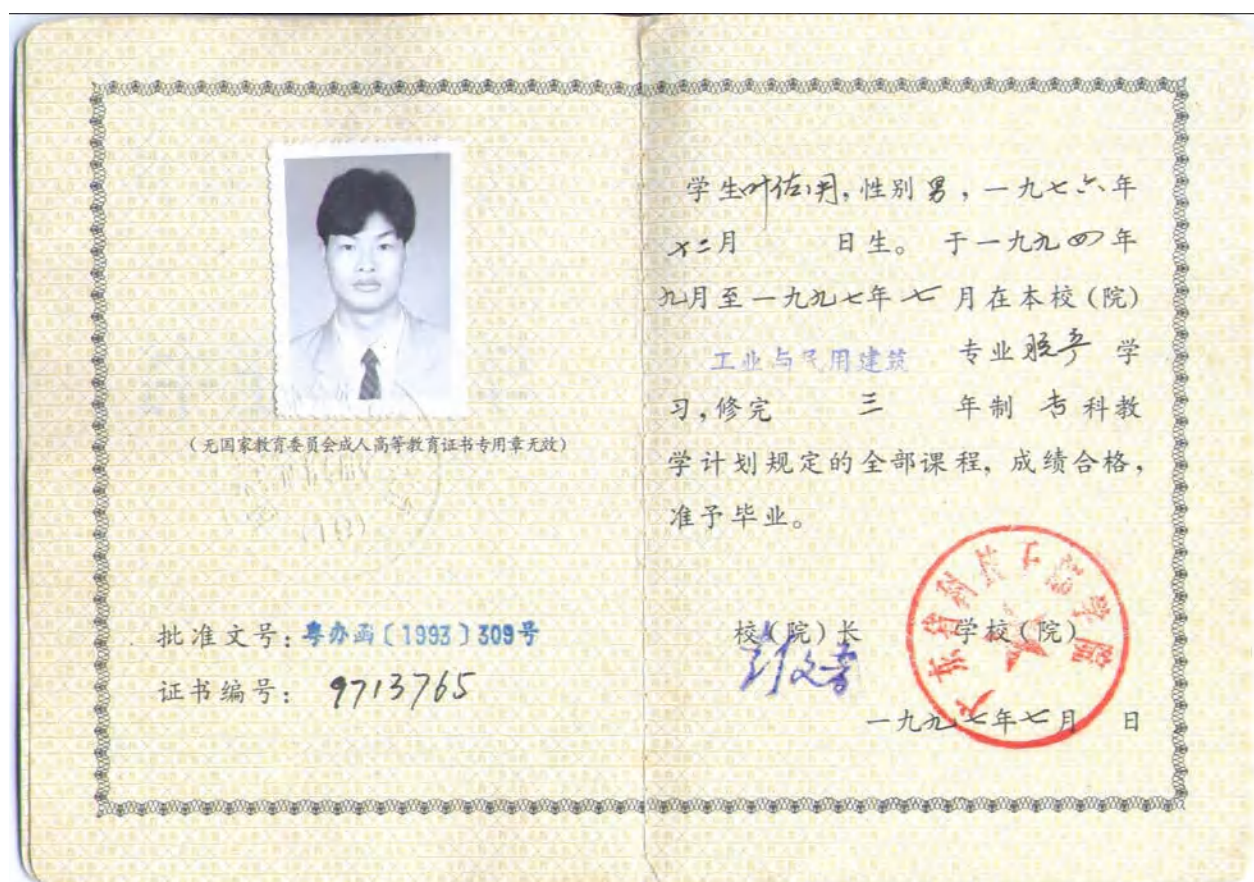 (无国家教育委员会成人高等教育证书专用章无效)
批准文号:粤办函〔1993〕309号
证书编号: 9713765
学生叶佐,性别男,一九七六年
十二月 日生。于一九九四年
九月至一九九七年七月在本校(院)
工业与民用建筑 专业脱产 学
习,修完 三 年制 专科教
学计划规定的全部课程,成绩合格,
准予毕业。
校(院)长 学校(院)
广东省科技干部学院
一九九七年七月 日